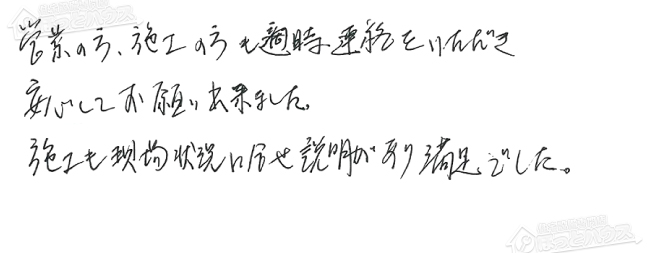 営業の方、施工の方も適時連絡をいただき
安心してお願い出来ました。
施工も現場状況に合せ説明があり満足でした。